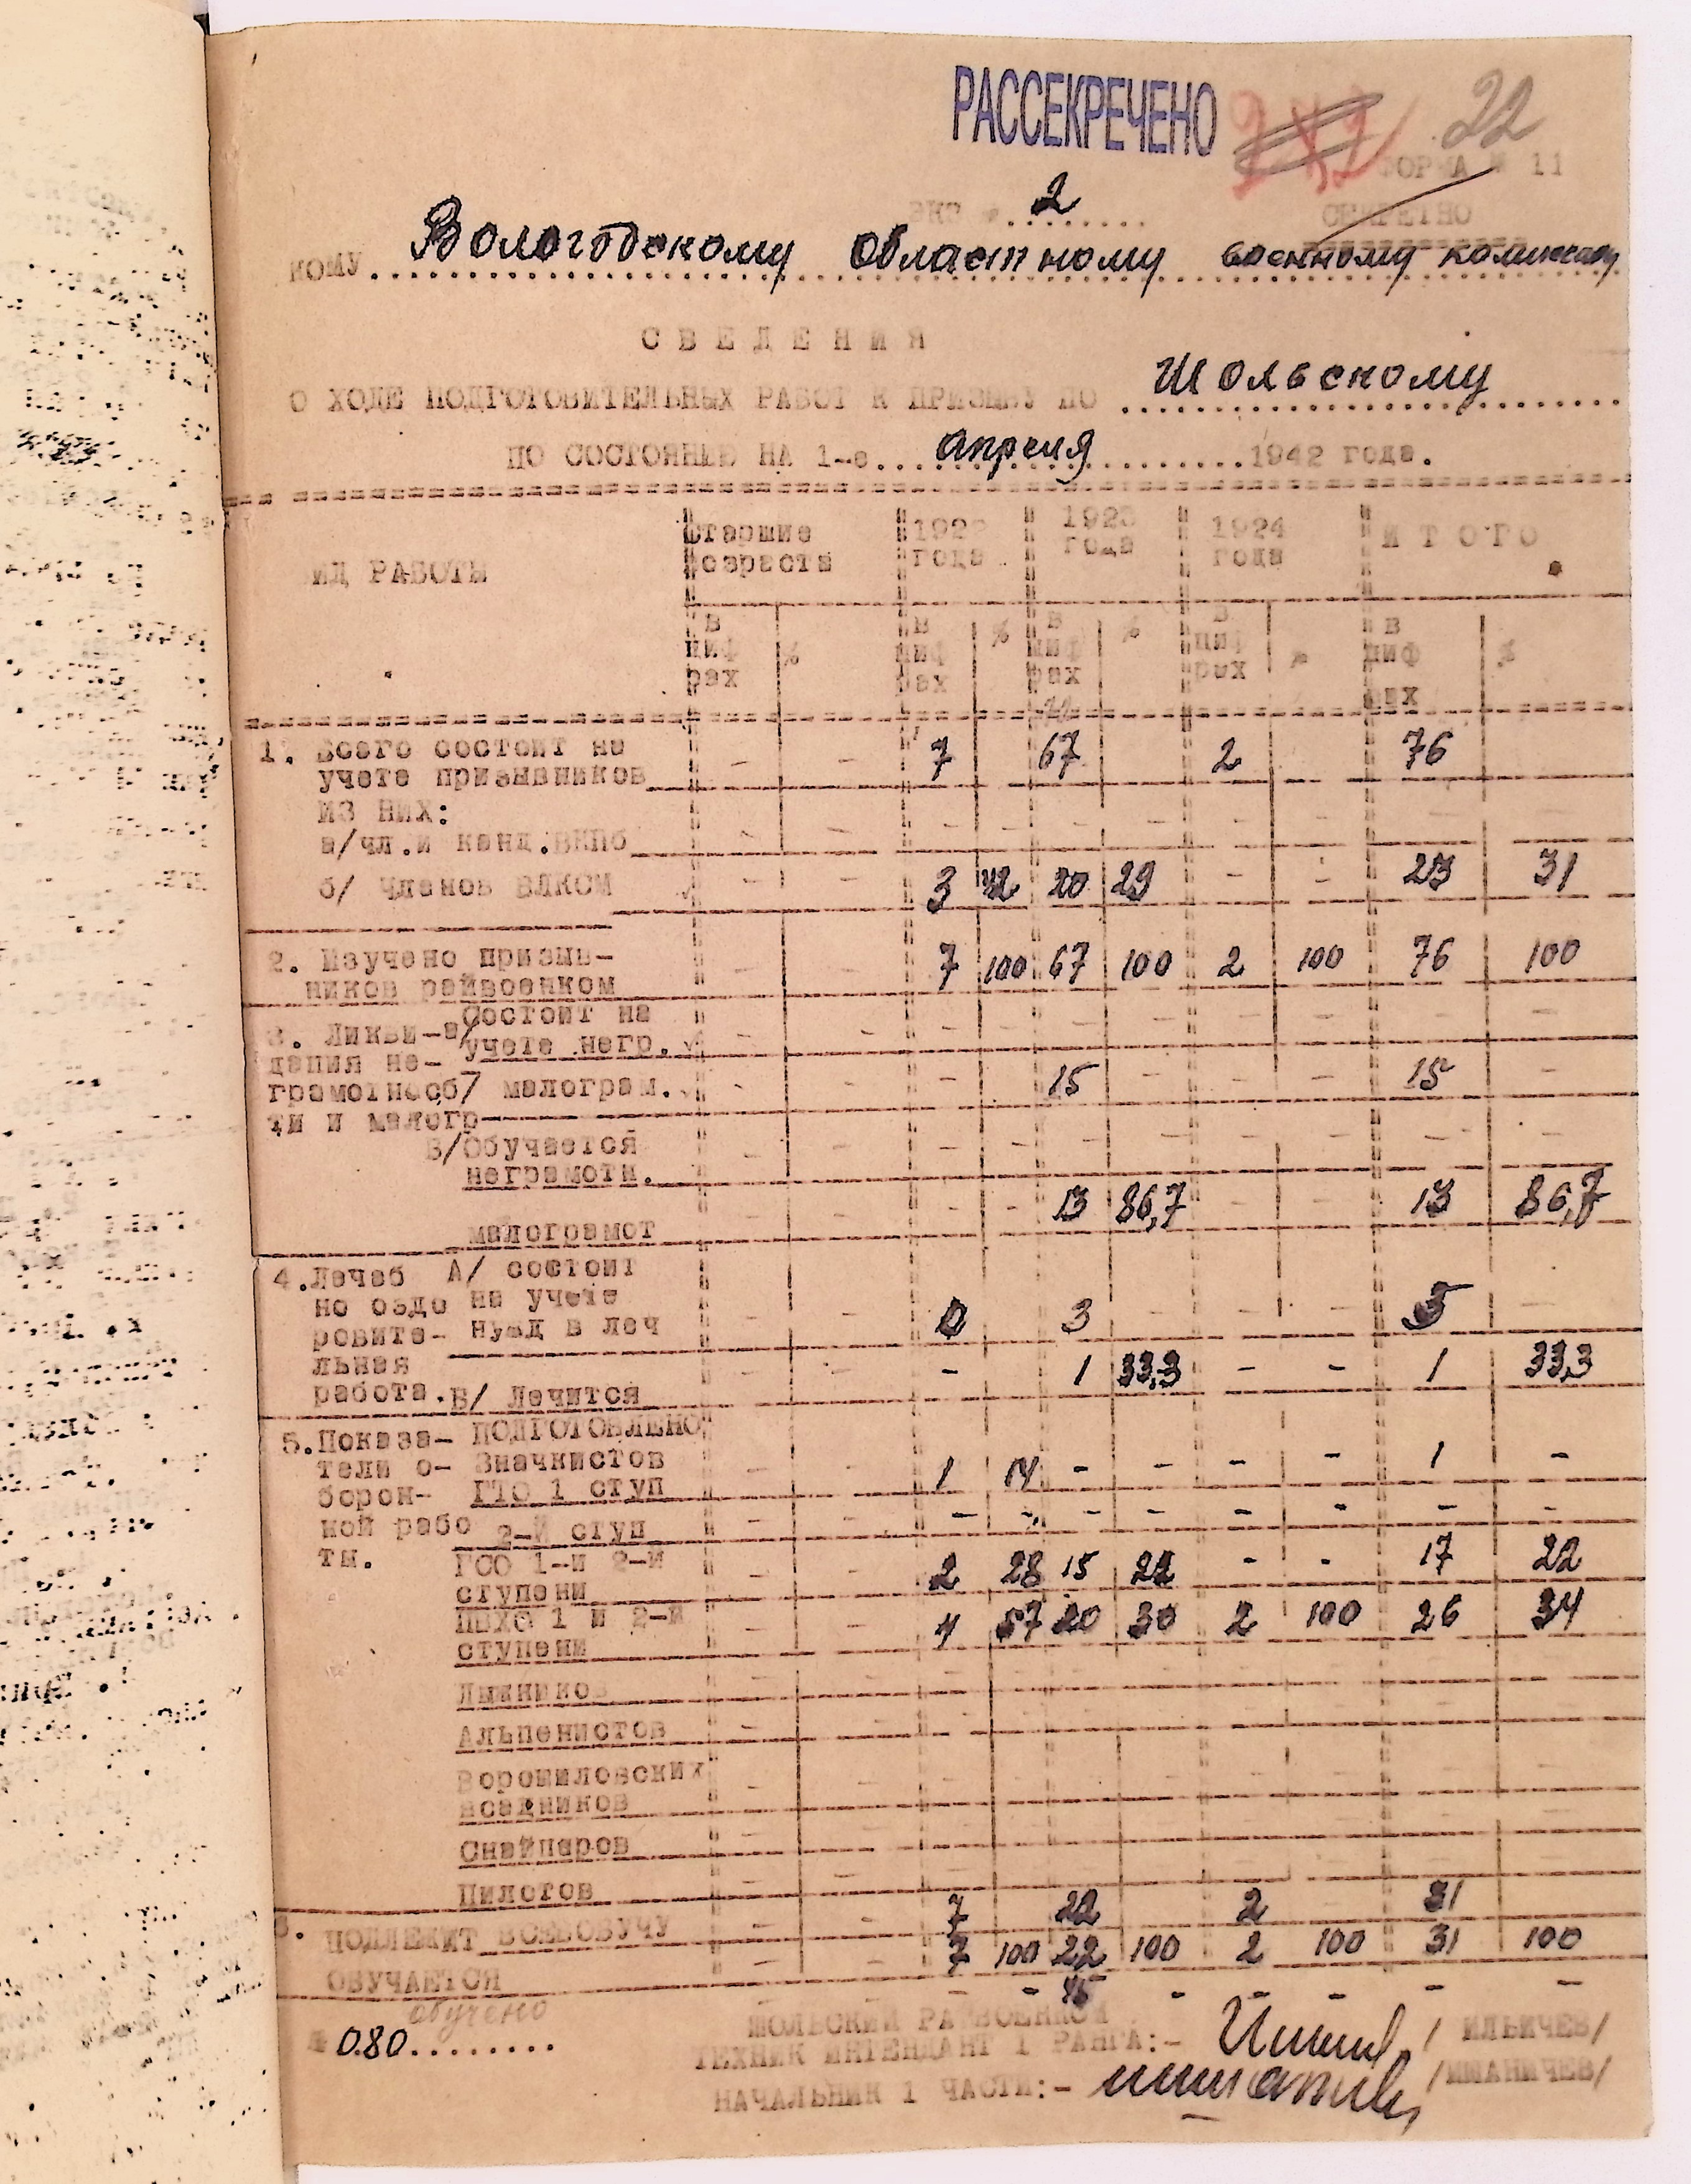 РАССЕКРЕЧЕНО
22
ФОРМА № 11
ЭКЗ № 2
СЕКРЕТНО
КОМУ Вологодскому Областному военному комиссару
С В Е Д Е Н И Я
О ХОДЕ ПОДГОТОВИТЕЛЬНЫХ РАБОТ К ПРИЗЫВУ ПО Шольскому
ПО СОСТОЯНИЮ НА 1-е апреля 1942 года.
ВИД РАБОТЫ
Старшие возраста
1922 года
1923 года
1924 года
И Т О Г О
в циф рах % в циф рах % в циф рах % в циф рах % в циф рах %
1. Всего состоит на
учете призывников - - 7 67 2 - 76
ИЗ НИХ:
а/чл.и канд.ВКПб - - - - - - - - - -
б/ членов ВЛКСМ - - 3 42 20 29 - - 23 31
2. Изучено призыв-
ников райвоенком - - 7 100 67 100 2 100 76 100
3. Ликви- а/ Состоит на
дания не- учете негр. - - - - - - - - - -
грамотнос б/ малограм. - - - - 15 - - - 15 -
ти и малогр
В/Обучается
неграмотн. - - - - - - - - - -
малограмот - - - - 13 86,7 - - 13 86,7
4.Лечеб А/ состоит
но оздо на учете
ровите- нужд в леч - - 0 3 - - - 5 -
льная
работа. В/ Лечится - - - 1 33,3 - - 1 33,3
5.Показа- ПОДГОТОВЛЕНО
тели о- Значкистов
борон- ГТО 1 ступ - - 1 14 - - - - 1 -
ной рабо 2-й ступ - - - - - - - - - -
ты. ГСО 1-и 2-й
ступени - - 2 28 15 22 - - 17 22
ПВХО 1 и 2-й
ступени - - 4 57 20 30 2 100 26 34
Лыжников - - - - - - - - - -
Альпенистов - - - - - - - - - -
Ворошиловских
всадников - - - - - - - - - -
Снайперов - - - - - - - - - -
Пилотов - - - - - - - - - -
ПОДЛЕЖИТ ВСЕВОБУЧУ - - 7 22 2 31
ОБУЧАЕТСЯ - - 7 100 22 100 2 100 31 100
обучено - - - - 45 - - - - -
№ 080
ШОЛЬСКИЙ РАЙВОЕНКОМ
ТЕХНИК ИНТЕНДАНТ 1 РАНГА:- /ИЛЬИЧЕВ/
НАЧАЛЬНИК 1 ЧАСТИ:- /ИШАНИЧЕВ/